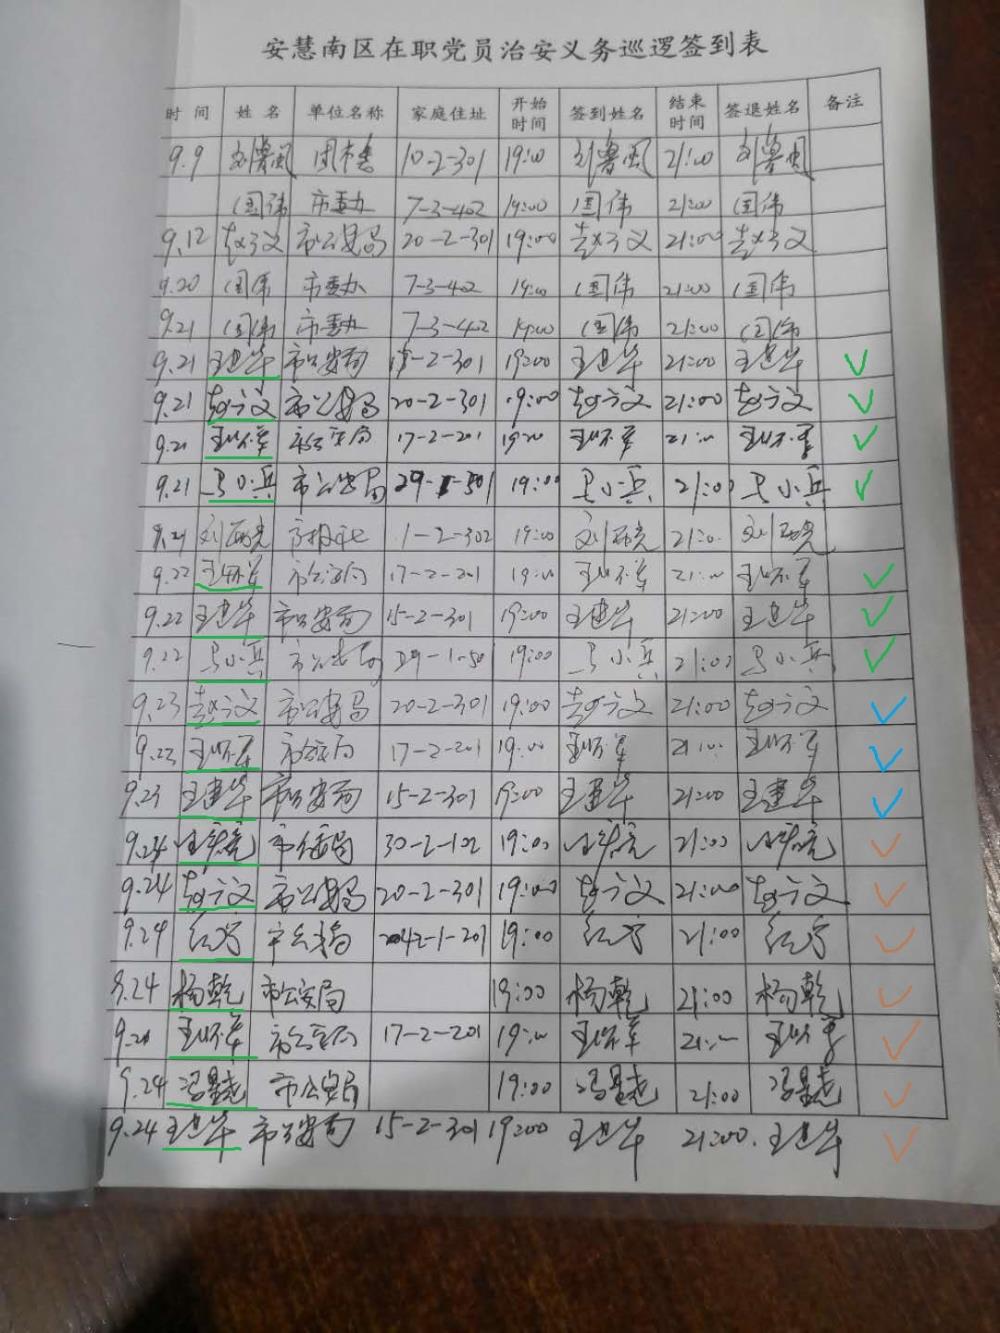 安慧南区在职党员治安义务巡逻签到表
时间 姓名 单位名称 家庭住址 开始时间 签到姓名 结束时间 签退姓名 备注
9.9 10-2-301 19:00 21:00
国伟 市委办 7-3-402 19:00 国伟 21:00 国伟
9.12 赵方文 市公安局 20-2-301 19:00 赵方文 21:00 赵方文
9.20 国伟 市委办 7-3-402 19:00 国伟 21:00 国伟
9.21 国伟 市委办 7-3-402 19:00 国伟 21:00 国伟
9.21 王建华 市公安局 15-2-301 19:00 王建华 21:00 王建华
9.21 赵方文 市公安局 20-2-301 19:00 赵方文 21:00 赵方文
9.21 市公安局 17-2-201 19:00 21:00
9.21 马小兵 市公安局 29-1-501 19:00 马小兵 21:00 马小兵
9.21 市报社 1-2-302 19:00 21:00
9.22 市公安局 17-2-201 19:00 21:00
9.22 王建华 市公安局 15-2-301 19:00 王建华 21:00 王建华
9.22 马小兵 市公安局 29-1-50 19:00 马小兵 21:00 马小兵
9.23 赵方文 市公安局 20-2-301 19:00 赵方文 21:00 赵方文
9.23 市公安局 17-2-201 19:00 21:00
9.23 王建华 市公安局 15-2-301 19:00 王建华 21:00 王建华
9.24 市公安局 30-2-102 19:00 21:00
9.24 赵方文 市公安局 20-2-301 19:00 赵方文 21:00 赵方文
9.24 市公安局 42-1-201 19:00 21:00
9.24 杨乾 市公安局 19:00 杨乾 21:00 杨乾
市公安局 17-2-201 19:00 21:00
9.24 市公安局 19:00 21:00
9.24 王建华 市公安局 15-2-301 19:00 王建华 21:00 王建华